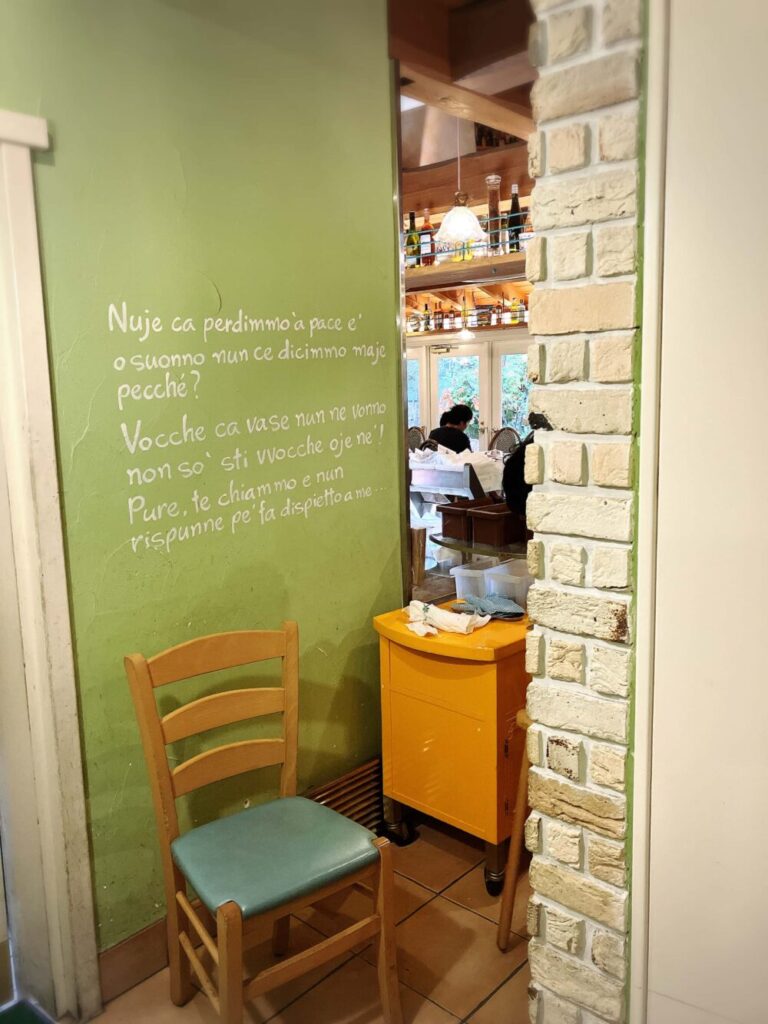 Nuje ca perdimmo'a pace e'
o suonno nun ce dicimmo maje
pecché?
Vocche ca vase nun ne vonno
non so' sti vvocche oje ne'!
Pure, te chiammo e nun
rispunne pe' fa dispietto a me...